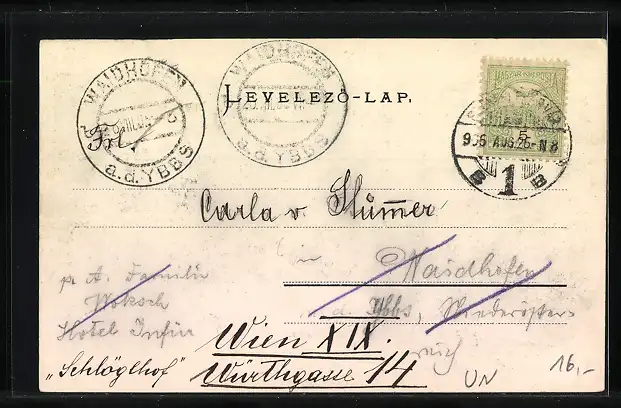 WAIDHOFEN
a.d. YBBS
WAIDHOFEN
a.d. YBBS
LEVELEZŐ-LAP.
MAGYAR KIR. POSTA
5
906 AUG. 25 - N 8
1
B B
Frl.
Carla v. Stummer
in Waidhofen
a. d. Ybbs, Niederöster-
reich
p. A. Familie
Hotel
Wien XIX.
"Schlöglhof" Würthgasse 14
UN 16,-